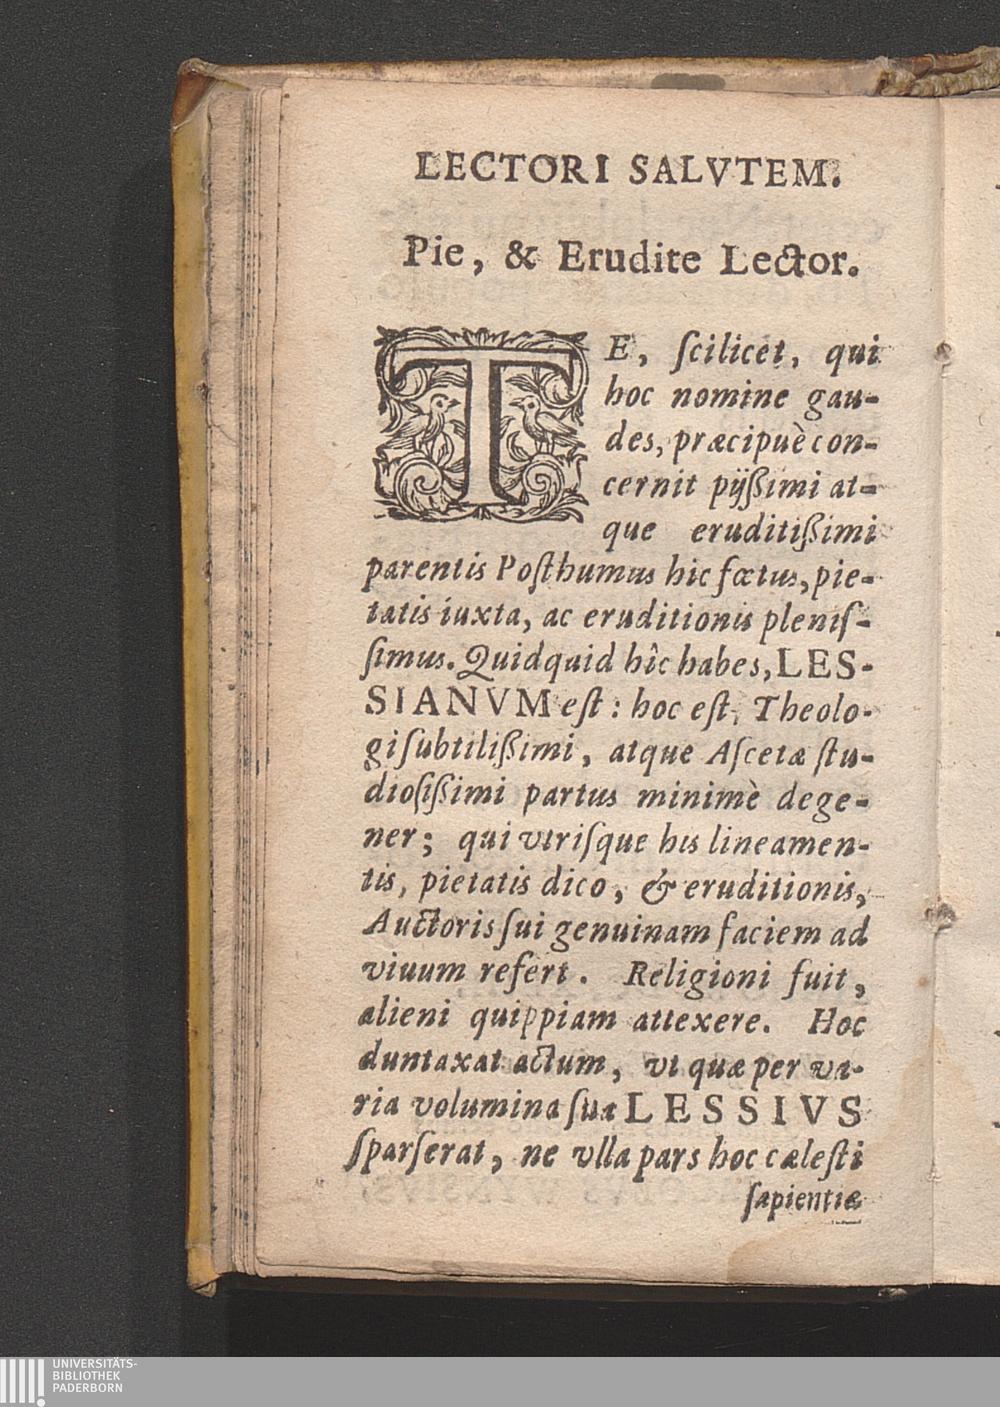 LECTORI SALVTEM.
Pie, & Erudite Lector.
TE, ſcilicet, qui
hoc nomine gau-
des, præcipuè con-
cernit pijßimi at-
que eruditißimi
parentis Poſthumus hic fœtus, pie-
tatis iuxta, ac eruditionis pleniſ-
ſimus. Quidquid hîc habes, LES-
SIANVM eſt: hoc eſt, Theolo-
gi ſubtilißimi, atque Aſcetæ ſtu-
dioſißimi partus minimè dege-
ner; qui vtriſque his lineamen-
tis, pietatis dico, & eruditionis,
Auctoris ſui genuinam faciem ad
viuum refert. Religioni fuit,
alieni quippiam attexere. Hoc
duntaxat actum, vt quæ per va-
ria volumina ſua LESSIVS
ſparſerat, ne vlla pars hoc cæleſti
ſapientiæ
UNIVERSITÄTS-
BIBLIOTHEK
PADERBORN